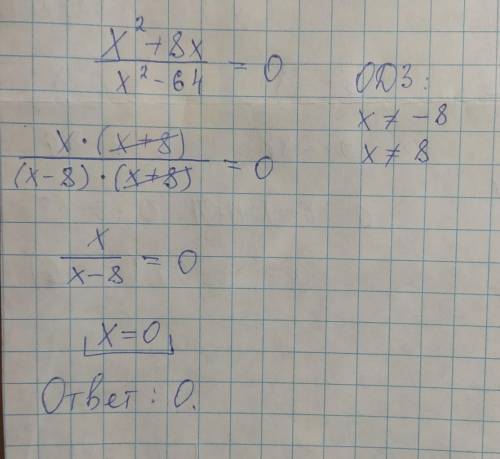 x² + 8x / x² - 64 = 0
ОДЗ:
x ≠ -8
x ≠ 8
x · (x+8) / (x-8) · (x+8) = 0
x / x-8 = 0
x=0
Ответ: 0.